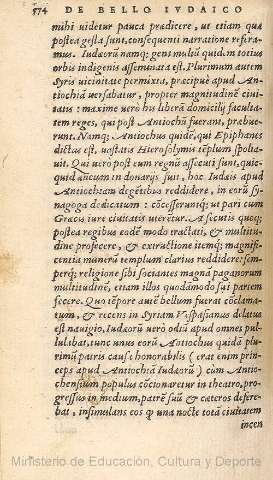 574 DE BELLO IVDAICO
mihi uidetur pauca prædicere, ut etiam quæ
postea gesta sunt, consequenti narratione refera-
mus. Iudæorũ namq; gens multũ quidẽ in totius
orbis indigenis asseminata est. Plurimum autem
Syris uicinitate permixta, præcipuè apud An-
tiochiã uersabatur, propter magnitudinẽ ciui-
tatis : maxime uerò his liberã domicilij faculta-
tem reges, qui post Antiochũ fuerant, præbue-
runt. Namq; Antiochus quidẽ, qui Epiphanes
dictus est, uastatis Hierosolymis tẽplum spolia-
uit. Qui uerò post eum regnũ assecuti sunt, quic-
quid æneum in donarijs fuit, hoc Iudæis apud
Antiochiam degẽtibus reddidere, in eorũ sy-
nagoga dedicatum : cõcesseruntq; ut pari cum
Græcis iure ciuitatis uterẽtur. A secutis quoq;
postea regibus eodẽ modo tractati, & multitu-
dine profecere, & extructione itemq; magnifi-
centia munerũ templum clarius reddidere: sem-
perq; religione sibi sociantes magnã paganorum
multitudinẽ, etiam illos quodãmodo sui partem
fecere. Quo tẽpore autẽ bellum fuerat cõclama-
tum, & recens in Syriam Vespasianus delatus
est nauigio, Iudæorũ uerò odiũ apud omnes pul-
lulabat, tunc unus eorũ Antiochus quidã plu-
rimũ patris causa honorabilis (erat enim prin-
ceps apud Antiochiã Iudæorũ) cùm Antio-
chensium populus cõcionaretur in theatro, pro-
gressus in medium, patrẽ suũ & cæteros defere-
bat, insimulans eos q̃ una nocte totã ciuitatem
incen
Ministerio de Educación, Cultura y Deporte